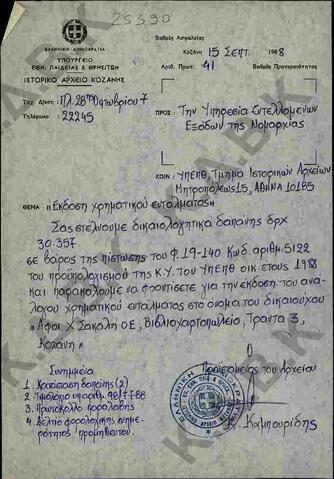 25390
ΕΛΛΗΝΙΚΗ ΔΗΜΟΚΡΑΤΙΑ
ΥΠΟΥΡΓΕΙΟ
ΕΘΝ. ΠΑΙΔΕΙΑΣ & ΘΡΗΣ/ΤΩΝ
ΙΣΤΟΡΙΚΟ ΑΡΧΕΙΟ ΚΟΖΑΝΗΣ
Ταχ. Δ/νση : Πλ. 28ης Οκτωβρίου 7
Τηλέφωνο : 22245
Βαθμός Ασφαλείας
Κοζάνη 15 Σεπτ. 1988
Αριθ. Πρωτ. 41 Βαθμός Προτεραιότητας
ΠΡΟΣ: Την Υπηρεσία Εντελλομένων
Εξόδων της Νομαρχίας
ΚΟΙΝ: ΥΠΕΠΘ, Τμήμα Ιστορικών Αρχείων
Μητροπόλεως 15, ΑΘΗΝΑ 10185
ΘΕΜΑ: «Έκδοση χρηματικού εντάλματος»
Σας στέλνουμε δικαιολογητικά δαπάνης δρχ
30.357
σε βάρος της πίστωσης του Φ. 19-140 Κωδ. αριθμ. 5122
του προϋπολογισμού της Κ.Υ. του ΥΠΕΠΘ οικ. έτους 1988
και παρακαλούμε να φροντίσετε για την έκδοση του ανά-
λογου χρηματικού εντάλματος στο όνομα του δικαιούχου
«Αφοι Χ Σακαλή ΟΕ, Βιβλιοχαρτοπωλείο, Τράντα 3,
Κοζάνη»
Συνημμένα
1. Κατάσταση δαπάνης (2)
2. Τιμολόγιο υπ' αριθμ. 98/7-7-88
3. Πρωτόκολλο παραλαβής
4. Δελτίο φορολογικής ενημε-
ρότητος προμηθευτού.
Ο Προϊστάμενος του Αρχείου
Β. Καμπουρίδης
Κ.Α.Β.Κ